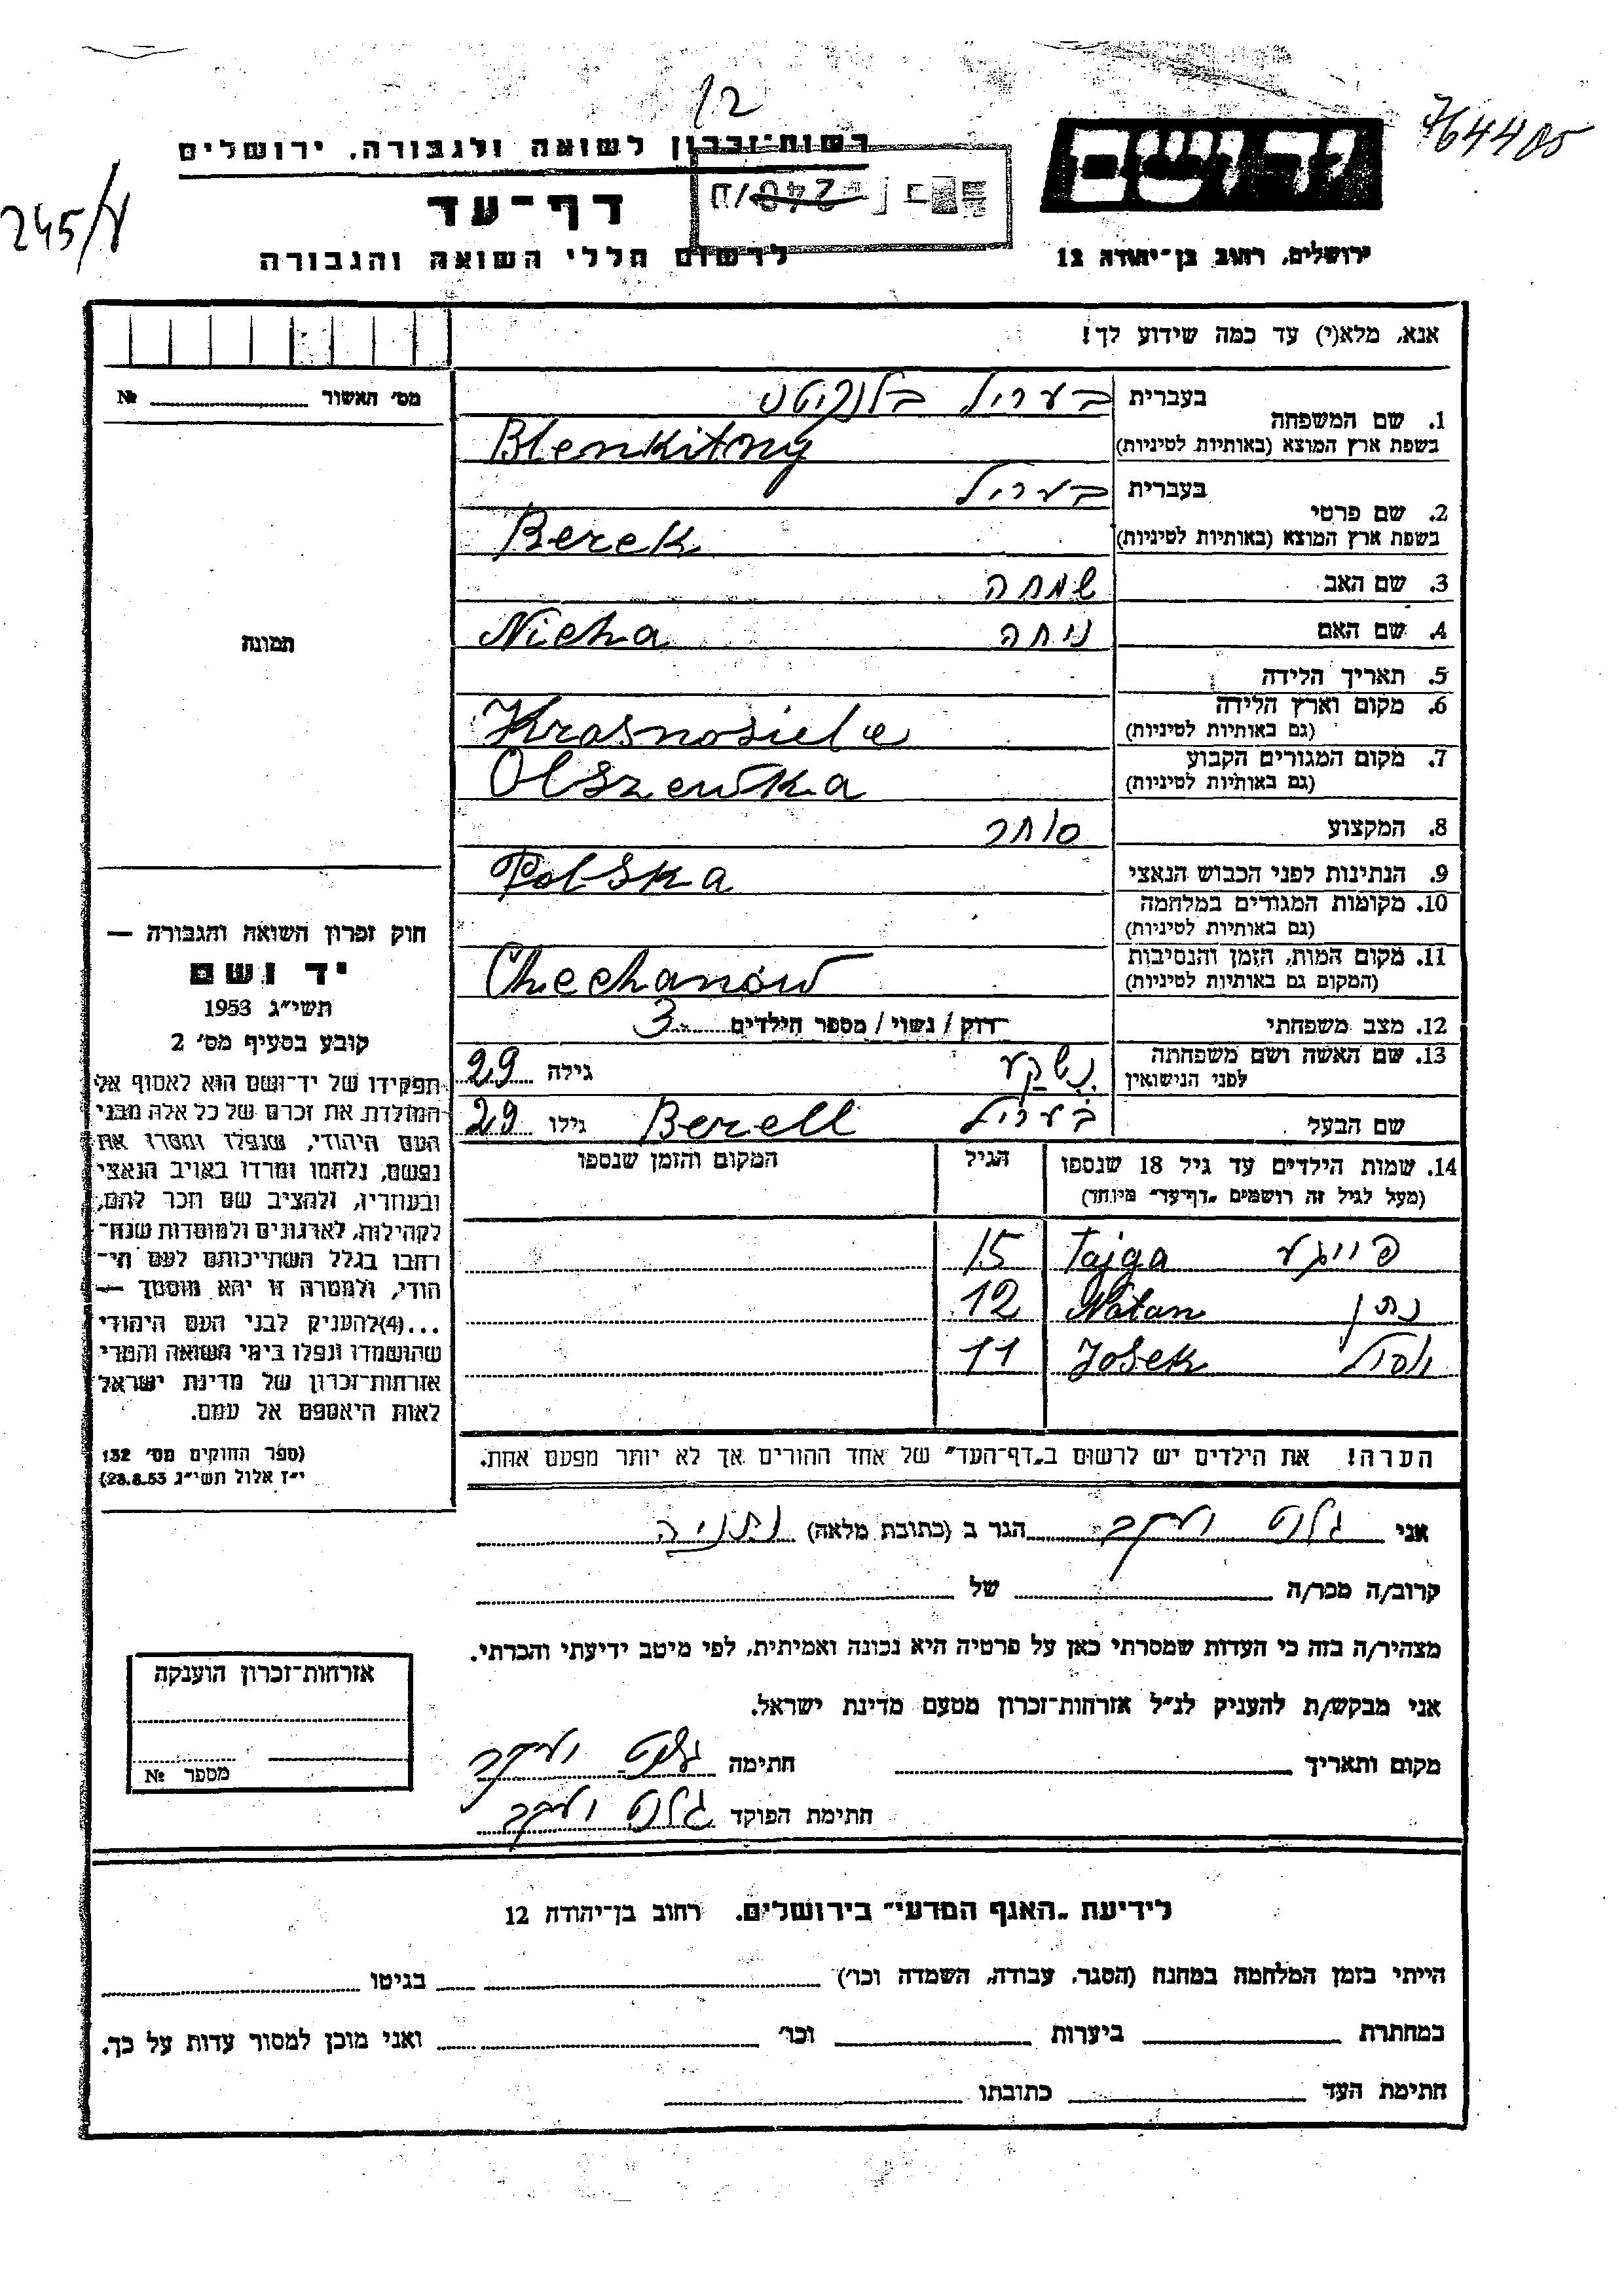 12
764405
רשות-זכרון לשואה ולגבורה. ירושלים
יד ושם
245/ץ
דף-עד
לרשום חללי השואה והגבורה
ירושלים, רחוב בן-יהודה 12
אנא, מלא(י) עד כמה שידוע לך!
מס׳ האשור № 
1. שם המשפחה
בעברית
בעריל בלנקיטני
בשפת ארץ המוצא (באותיות לטיניות)
Blenkitny
2. שם פרטי
בעברית
בעריל
בשפת ארץ המוצא (באותיות לטיניות)
Berek
3. שם האב שמחה
4. שם האם ניחה Nicha
תמונה
5. תאריך הלידה
6. מקום וארץ הלידה Krasnosiele
(גם באותיות לטיניות)
7. מקום המגורים הקבוע Olszewka
(גם באותיות לטיניות)
8. המקצוע סוחר
9. הנתינות לפני הכבוש הנאצי Polska
10. מקומות המגורים במלחמה
(גם באותיות לטיניות)
11. מקום המות, הזמן והנסיבות Chechanów
(המקום גם באותיות לטיניות)
12. מצב משפחתי רווק / נשוי / מספר הילדים 3
13. שם האשה ושם משפחתה
לפני הנישואין
נשקע גילה 29
שם הבעל בעריל Berell גילו 29
14. שמות הילדים עד גיל 18 שנספו הגיל המקום והזמן שנספו
(מעל לגיל זה רושמים „דף-עד״ מיוחד)
פייגע Tajga 15
נתן Natan 12
יוסל Josek 11
הערה! את הילדים יש לרשום ב„דף-העד״ של אחד ההורים אך לא יותר מפעם אחת.
חוק זכרון השואה והגבורה —
יד ושם
תשי״ג 1953
קובע בסעיף מס׳ 2
תפקידו של יד-ושם הוא לאסוף אל
המולדת את זכרם של כל אלה מבני
העם היהודי, שנפלו ומסרו את
נפשם, נלחמו ומרדו באויב הנאצי
ובעוזריו, ולהציב שם וזכר להם,
לקהילות, לארגונים ולמוסדות שנח-
רבו בגלל השתייכותם לעם הי-
הודי, ולמטרה זו יהא מוסמך —
...(4)להעניק לבני העם היהודי
שהושמדו ונפלו בימי השואה והמרי
אזרחות-זכרון של מדינת ישראל
לאות היאספם אל עמם.
(ספר החוקים מס׳ 132
י״ז אלול תשי״ג 28.8.53)
אני גלוט יעקב הגר ב (כתובת מלאה) נתניה
קרוב/ה מכר/ה של
מצהיר/ה בזה כי העדות שמסרתי כאן על פרטיה היא נכונה ואמיתית, לפי מיטב ידיעתי והכרתי.
אני מבקש/ת להעניק לנ״ל אזרחות-זכרון מטעם מדינת ישראל.
מקום ותאריך חתימה גלוט יעקב
חתימת הפוקד גלוט יעקב
אזרחות-זכרון הוענקה
מספר №
לידיעת „האגף המדעי״ בירושלים. רחוב בן-יהודה 12
הייתי בזמן המלחמה במחנה (הסגר, עבודה, השמדה וכו׳) בגיטו
במחתרת ביערות וכו׳ ואני מוכן למסור עדות על כך.
חתימת העד כתובתו